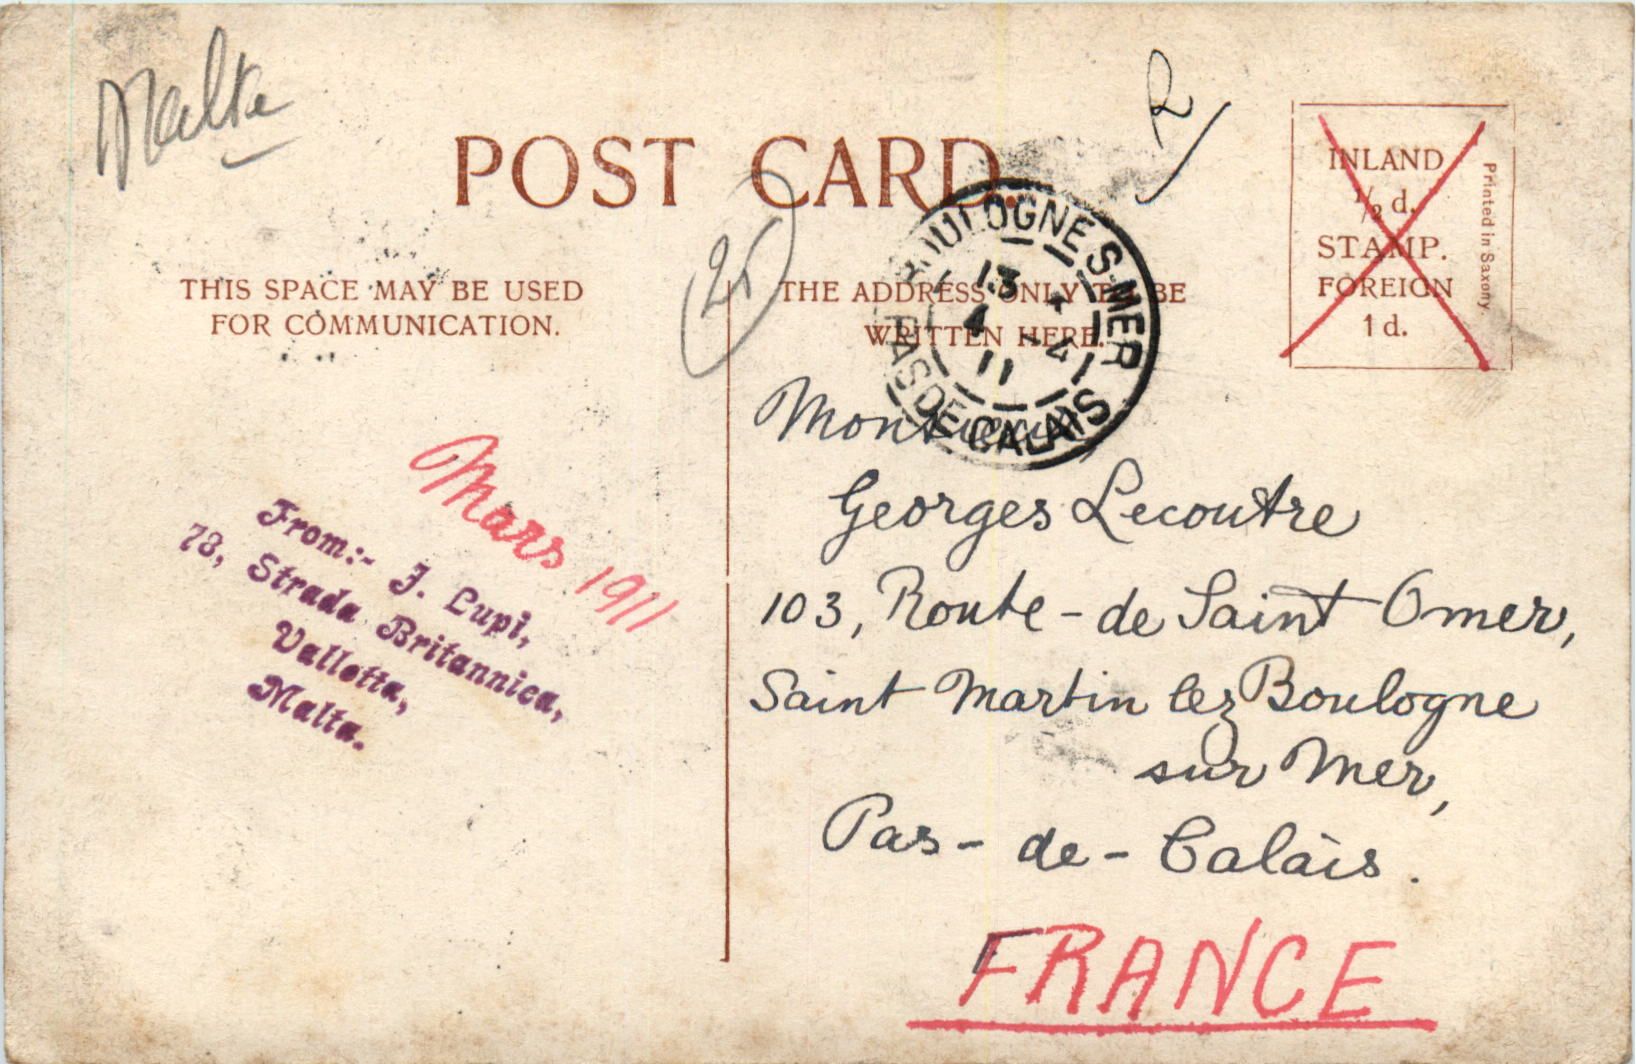 Malta
POST CARD.
INLAND
½ d.
STAMP.
FOREIGN
1 d.
Printed in Saxony.
THIS SPACE MAY BE USED
FOR COMMUNICATION.
THE ADDRESS ONLY TO BE
WRITTEN HERE.
BOULOGNE-S-MER
13
4
11
PAS DE CALAIS
Mars 1911
From:- J. Lupi,
78, Strada Britannica,
Valletta,
Malta.
Monsieur
Georges Lecoutre
103, Route-de Saint Omer,
Saint Martin lez Boulogne
sur Mer,
Pas-de-Calais.
FRANCE